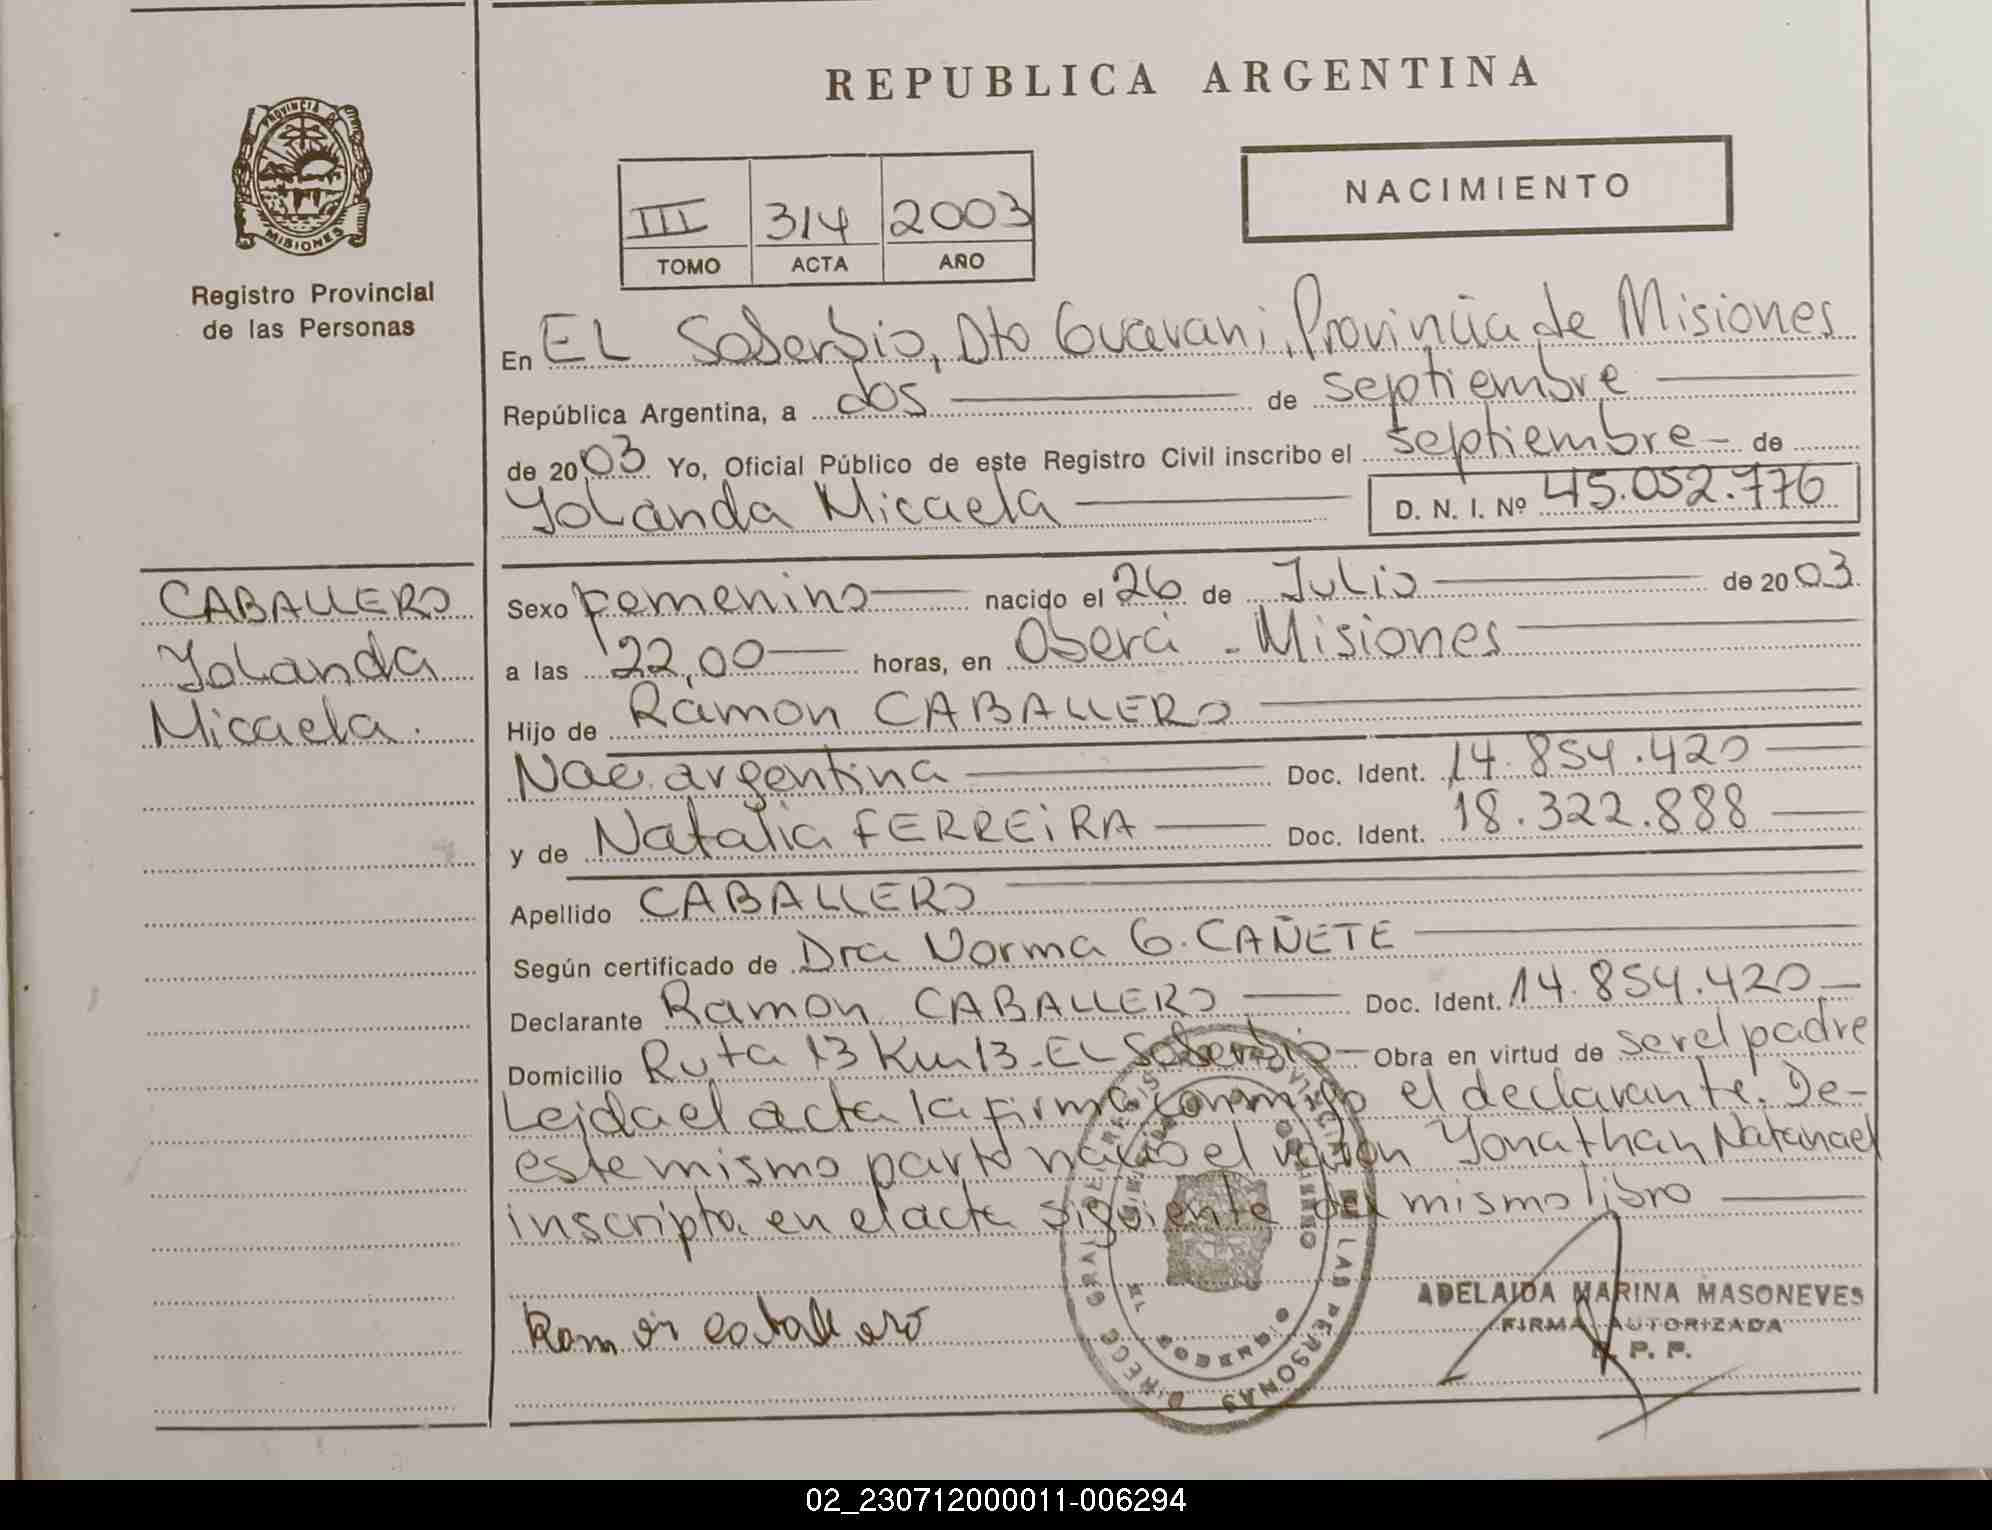 REPUBLICA ARGENTINA
PROVINCIA DE
MISIONES
Registro Provincial
de las Personas
NACIMIENTO
III 314 2003
TOMO ACTA AÑO
En EL Soberbio, Dto Guarani, Provincia de Misiones
República Argentina, a dos de septiembre
de 2003 Yo, Oficial Público de este Registro Civil inscribo el septiembre - de
Yolanda Micaela D. N. I. Nº 45.052.776
CABALLERO
Yolanda
Micaela.
Sexo Femenino nacido el 26 de Julio de 2003.
a las 22,00 horas, en Oberá - Misiones
Hijo de Ramon CABALLERO
Nac. argentina Doc. Ident. 14.854.420
y de Natalia FERREIRA Doc. Ident. 18.322.888
Apellido CABALLERO
Según certificado de Dra Norma G. CAÑETE
Declarante Ramon CABALLERO Doc. Ident. 14.854.420
Domicilio Ruta 13 Km 13 - EL Soberbio - Obra en virtud de ser el padre
Leida el acta la firma conmigo el declarante. De-
este mismo parto nacio el varon Yonathan Natanael
inscripto en el acta siguiente del mismo libro
Ramon caballero
ADELAIDA MARINA MASONEVES
FIRMA AUTORIZADA
R. P. P.
EL SOBERBIO
LAS PERSONAS
02_230712000011-006294